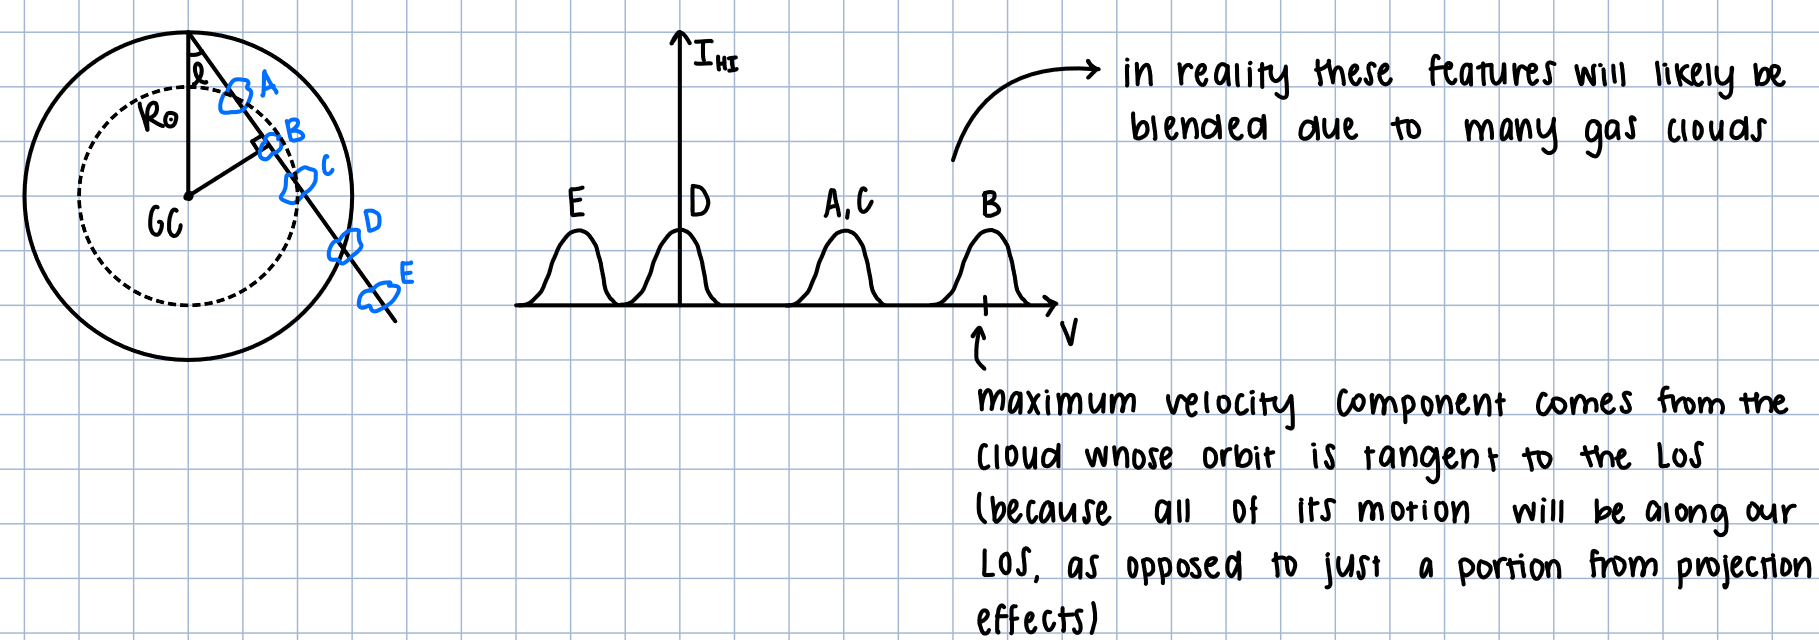 ℓ
A
R⊙
B
C
GC
D
E
I_HI
E
D
A,C
B
V
in reality these features will likely be
blended due to many gas clouds
maximum velocity component comes from the
cloud whose orbit is tangent to the LoS
(because all of its motion will be along our
LoS, as opposed to just a portion from projection
effects)